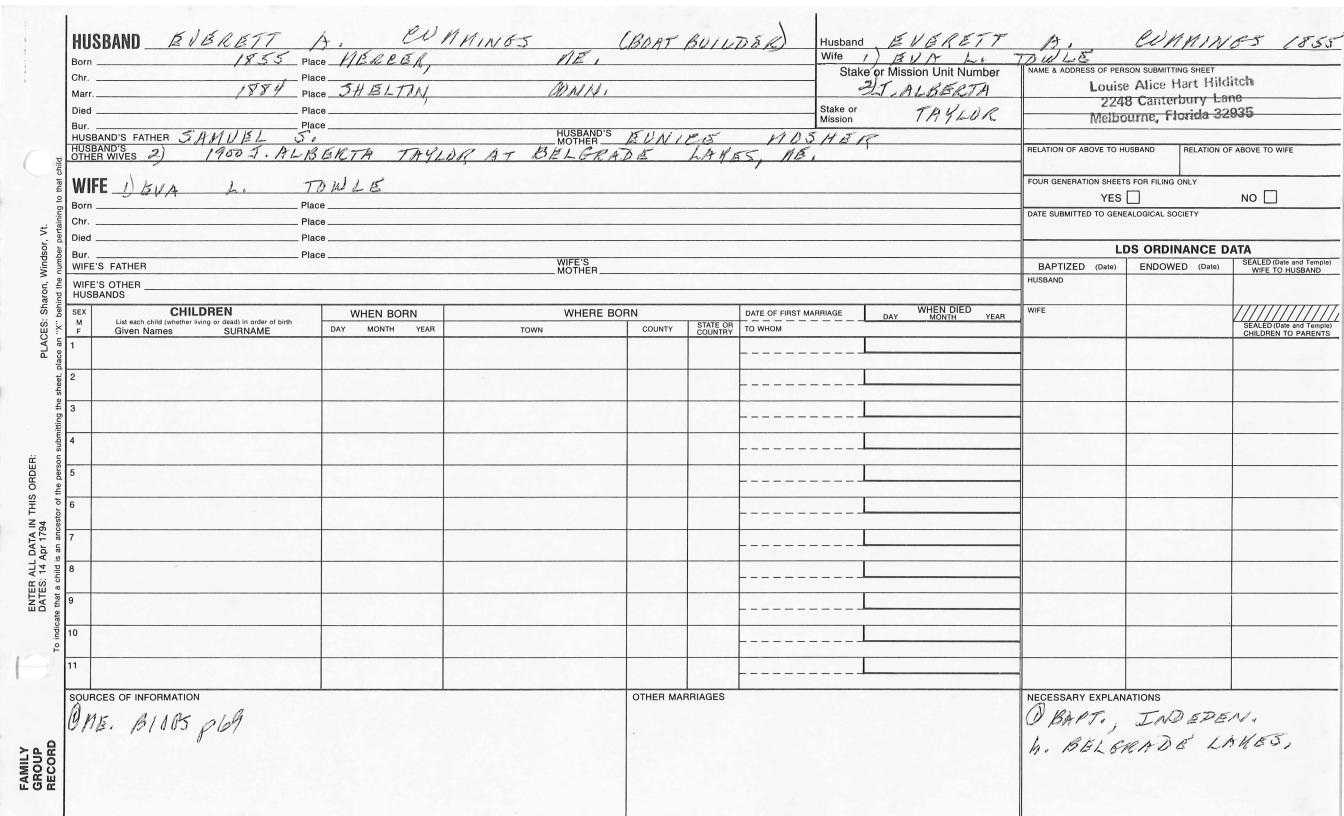 HUSBAND EVERETT A. CUMMINGS (BOAT BUILDER)
Born 1855 Place MERCER, ME.
Chr. Place
Marr. 1884 Place SHELTON, CONN.
Died Place
Bur. Place
HUSBAND'S FATHER SAMUEL S. HUSBAND'S MOTHER EUNICE MOSHER
HUSBAND'S OTHER WIVES 2) 1900 J. ALBERTA TAYLOR AT BELGRADE LAKES, ME.
WIFE 1) EVA L. TOWLE
Born Place
Chr. Place
Died Place
Bur. Place
WIFE'S FATHER WIFE'S MOTHER
WIFE'S OTHER HUSBANDS
Husband EVERETT A. CUMMINGS 1855
Wife 1) EVA L. TOWLE
Stake or Mission Unit Number
2) J. ALBERTA
Stake or Mission TAYLOR
NAME & ADDRESS OF PERSON SUBMITTING SHEET
Louise Alice Hart Hilditch
2248 Canterbury Lane
Melbourne, Florida 32935
RELATION OF ABOVE TO HUSBAND RELATION OF ABOVE TO WIFE
FOUR GENERATION SHEETS FOR FILING ONLY
YES NO
DATE SUBMITTED TO GENEALOGICAL SOCIETY
LDS ORDINANCE DATA
BAPTIZED (Date) ENDOWED (Date) SEALED (Date and Temple) WIFE TO HUSBAND
HUSBAND
WIFE
SEALED (Date and Temple) CHILDREN TO PARENTS
SEX M F
CHILDREN
List each child (whether living or dead) in order of birth
Given Names SURNAME
WHEN BORN
DAY MONTH YEAR
WHERE BORN
TOWN COUNTY STATE OR COUNTRY
DATE OF FIRST MARRIAGE
TO WHOM
WHEN DIED
DAY MONTH YEAR
1
2
3
4
5
6
7
8
9
10
11
SOURCES OF INFORMATION
① ME. BIOGS p69
OTHER MARRIAGES
NECESSARY EXPLANATIONS
① BAPT., INDEDEN.
h. BELGRADE LAKES,
PLACES: Sharon, Windsor, Vt.
ENTER ALL DATA IN THIS ORDER:
DATES: 14 Apr 1794
To indicate that a child is an ancestor of the person submitting the sheet, place an "X" behind the number pertaining to that child.
FAMILY
GROUP
RECORD